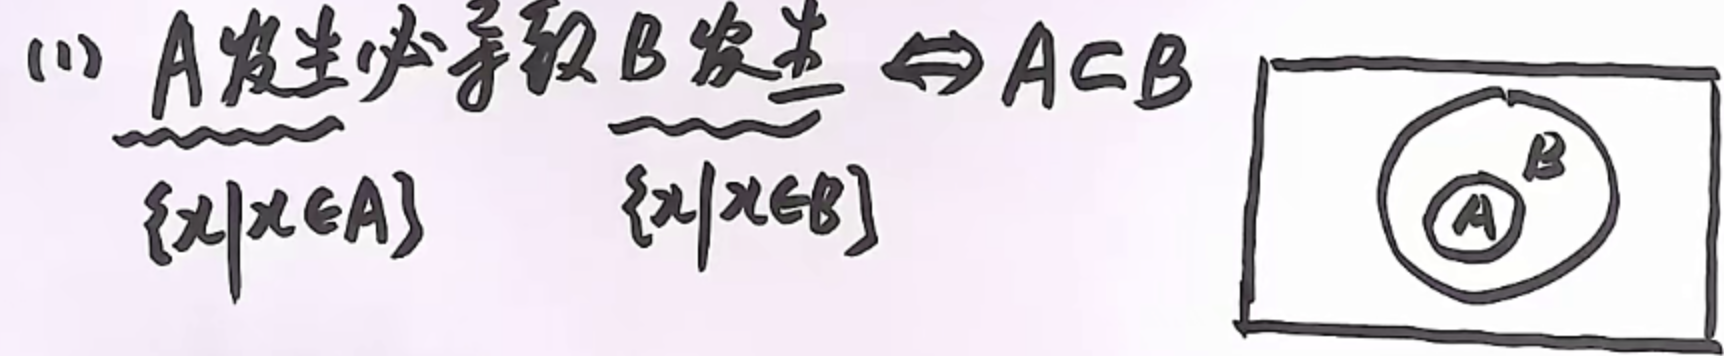 (1) A发生必导致B发生 ⇔ A⊂B
{x|x∈A} {x|x∈B}
B
A